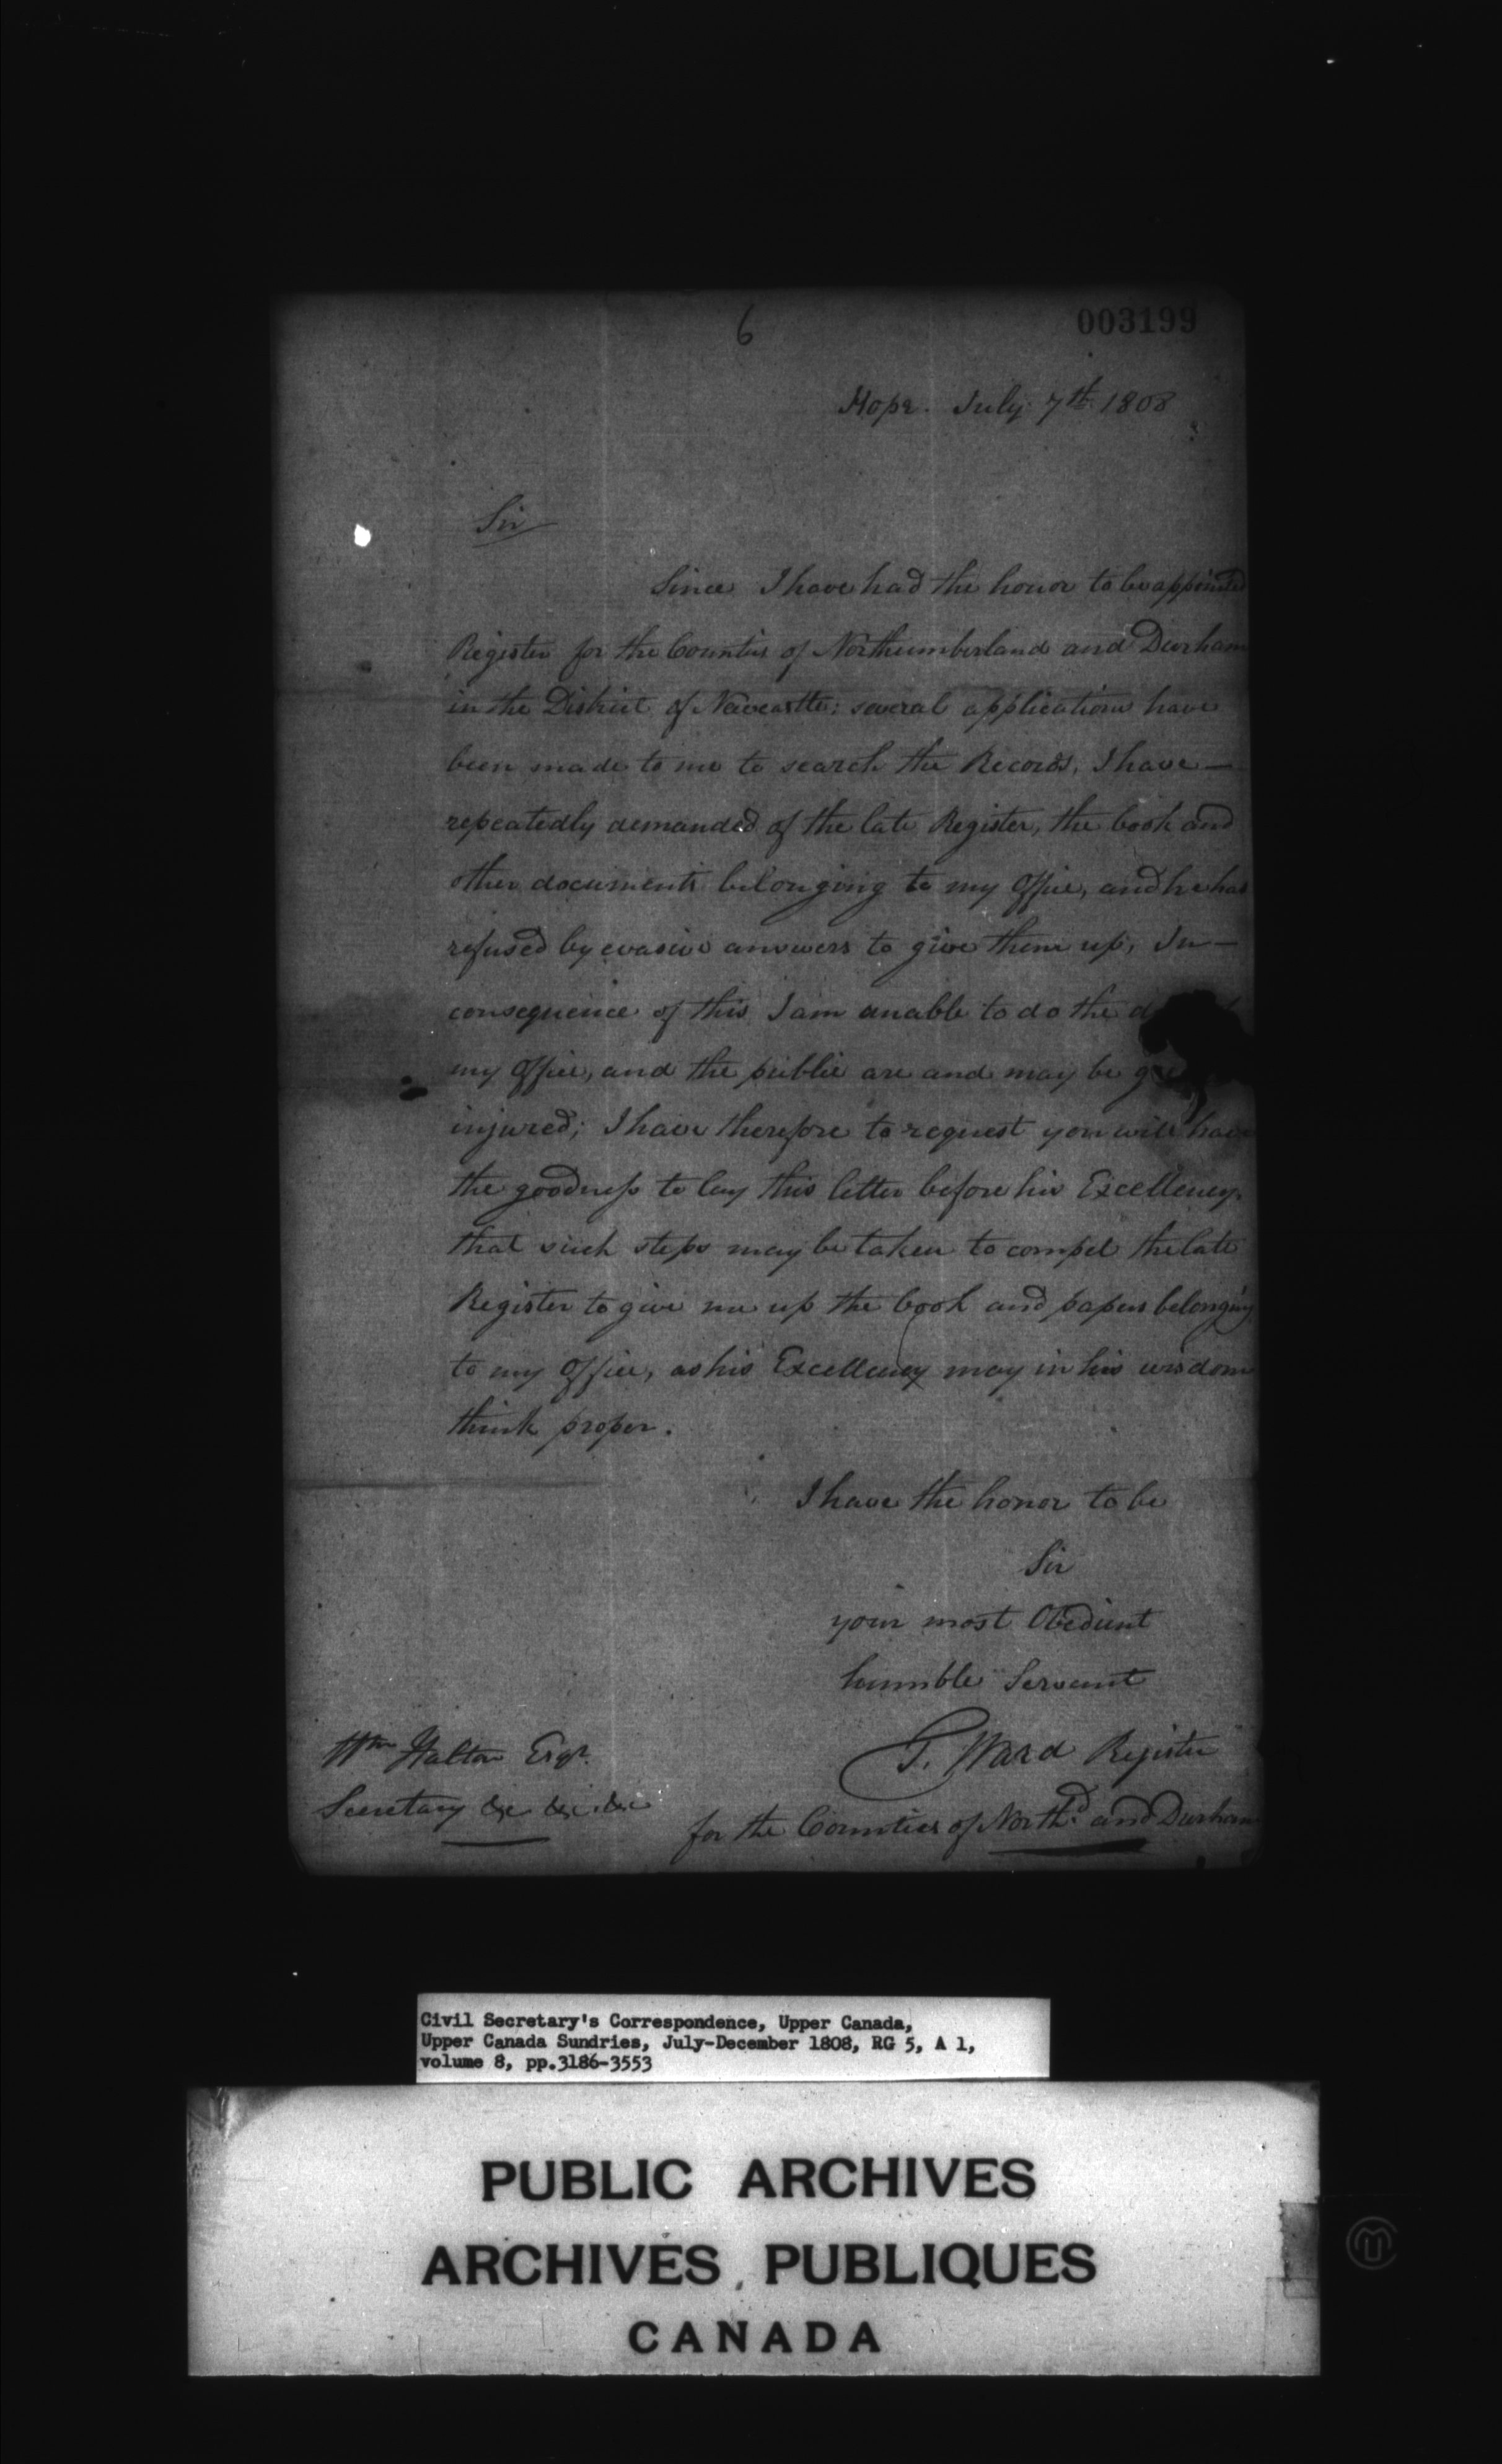 6
003199
Hope. July 7th 1808
Sir
Since I have had the honor to be appointed
Register for the Counties of Northumberland and Durham
in the District of Newcastle: several applications have
been made to me to search the Records, I have —
repeatedly demanded of the late Register, the book and
other documents belonging to my Office, and he has
refused by evasive answers to give them up, In —
consequence of this I am unable to do the
my Office, and the public are and may be
injured; I have therefore to request you will have
the goodness to lay this letter before his Excellency,
that such steps may be taken to compel the late
Register to give me up the book and papers belonging
to my Office, as his Excellency may in his wisdom
think proper.
I have the honor to be
Sir
your most Obedient
humble Servant
T. Ward Register
for the Counties of Northd. and Durham
Wm Halton Esqr.
Secretary &c &c &c
Civil Secretary's Correspondence, Upper Canada,
Upper Canada Sundries, July-December 1808, RG 5, A 1,
volume 8, pp.3186-3553
PUBLIC ARCHIVES
ARCHIVES PUBLIQUES
CANADA